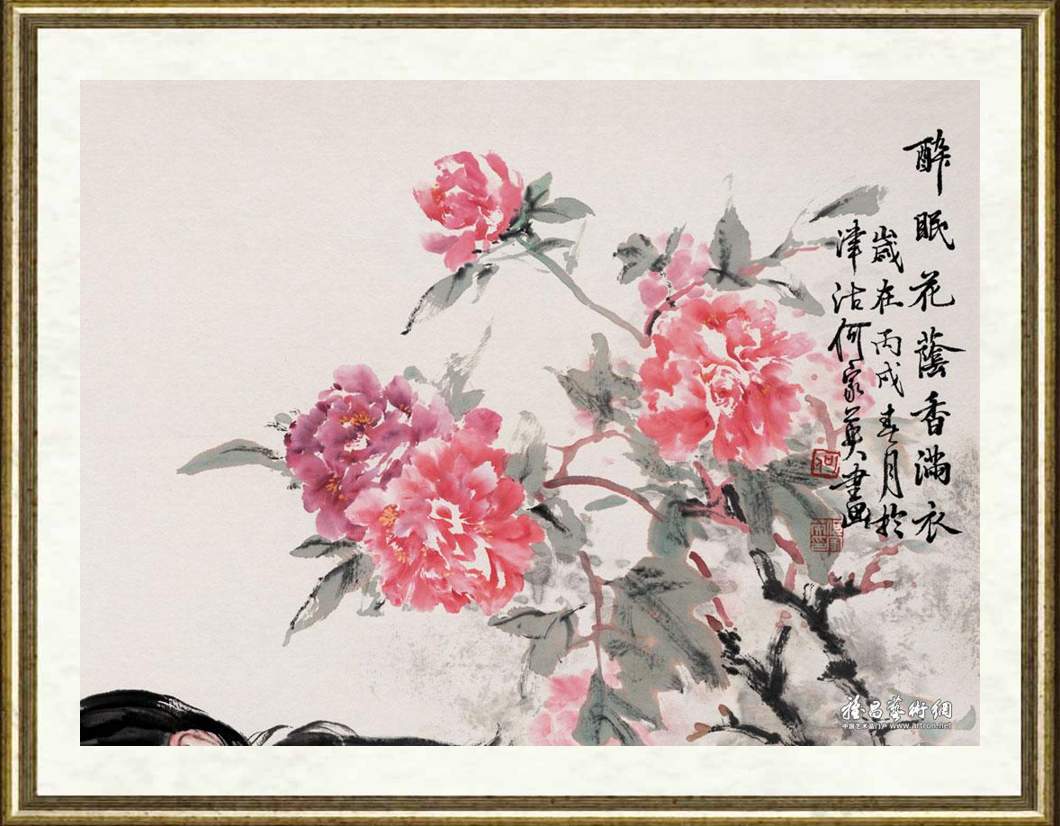 醉眠花蔭香滿衣
歲在丙戌春月於
津沽何家英畫
何
雅昌藝術網
中国艺术品门户 www.artron.net